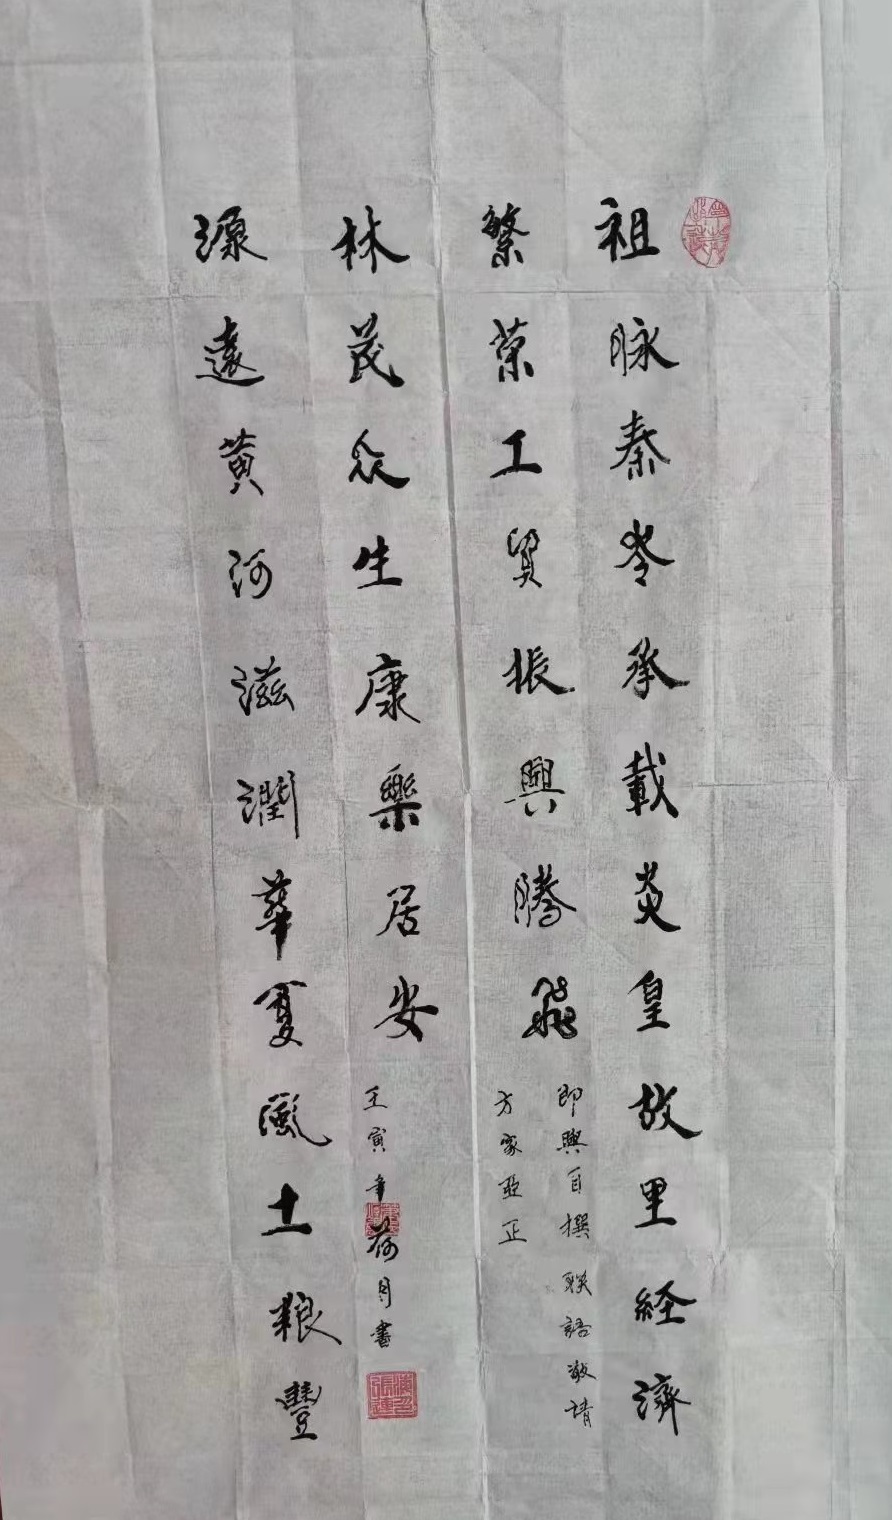 祖脉秦岺承載炎皇故里経濟
繁荣工貿振興騰飛
即興自撰联語敬請
方家亜正
林茂众生康樂居安
壬寅年荷月書
源遠黄河滋潤華夏風土粮豐